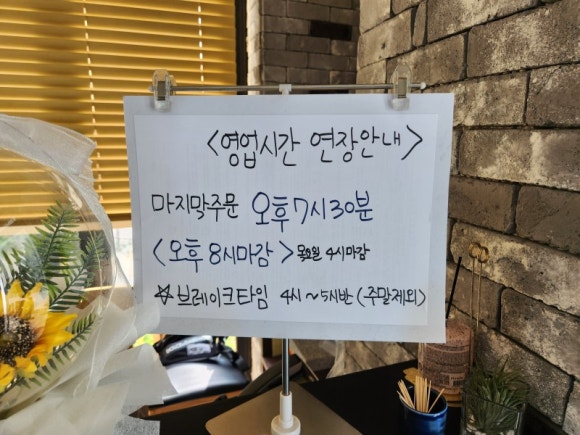 <영업시간 연장안내>
마지막주문 오후7시30분
<오후 8시마감> 목요일 4시마감
☆브레이크타임 4시~5시반(주말제외)